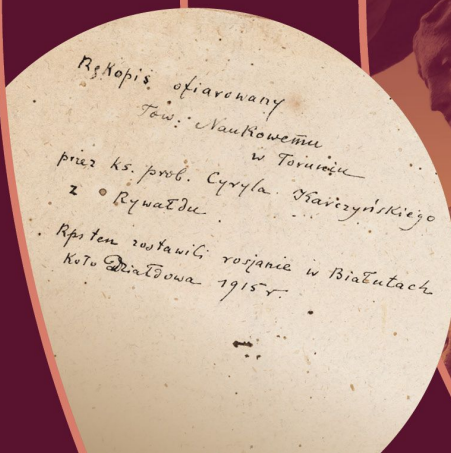 Rękopis ofiarowany
Tow. Naukowemu
w Toruniu
przez ks. prob. Cyryla Karczyńskiego
z Rywałdu.
Rps ten zostawili rosjanie w Białutach
koło Działdowa 1915 r.